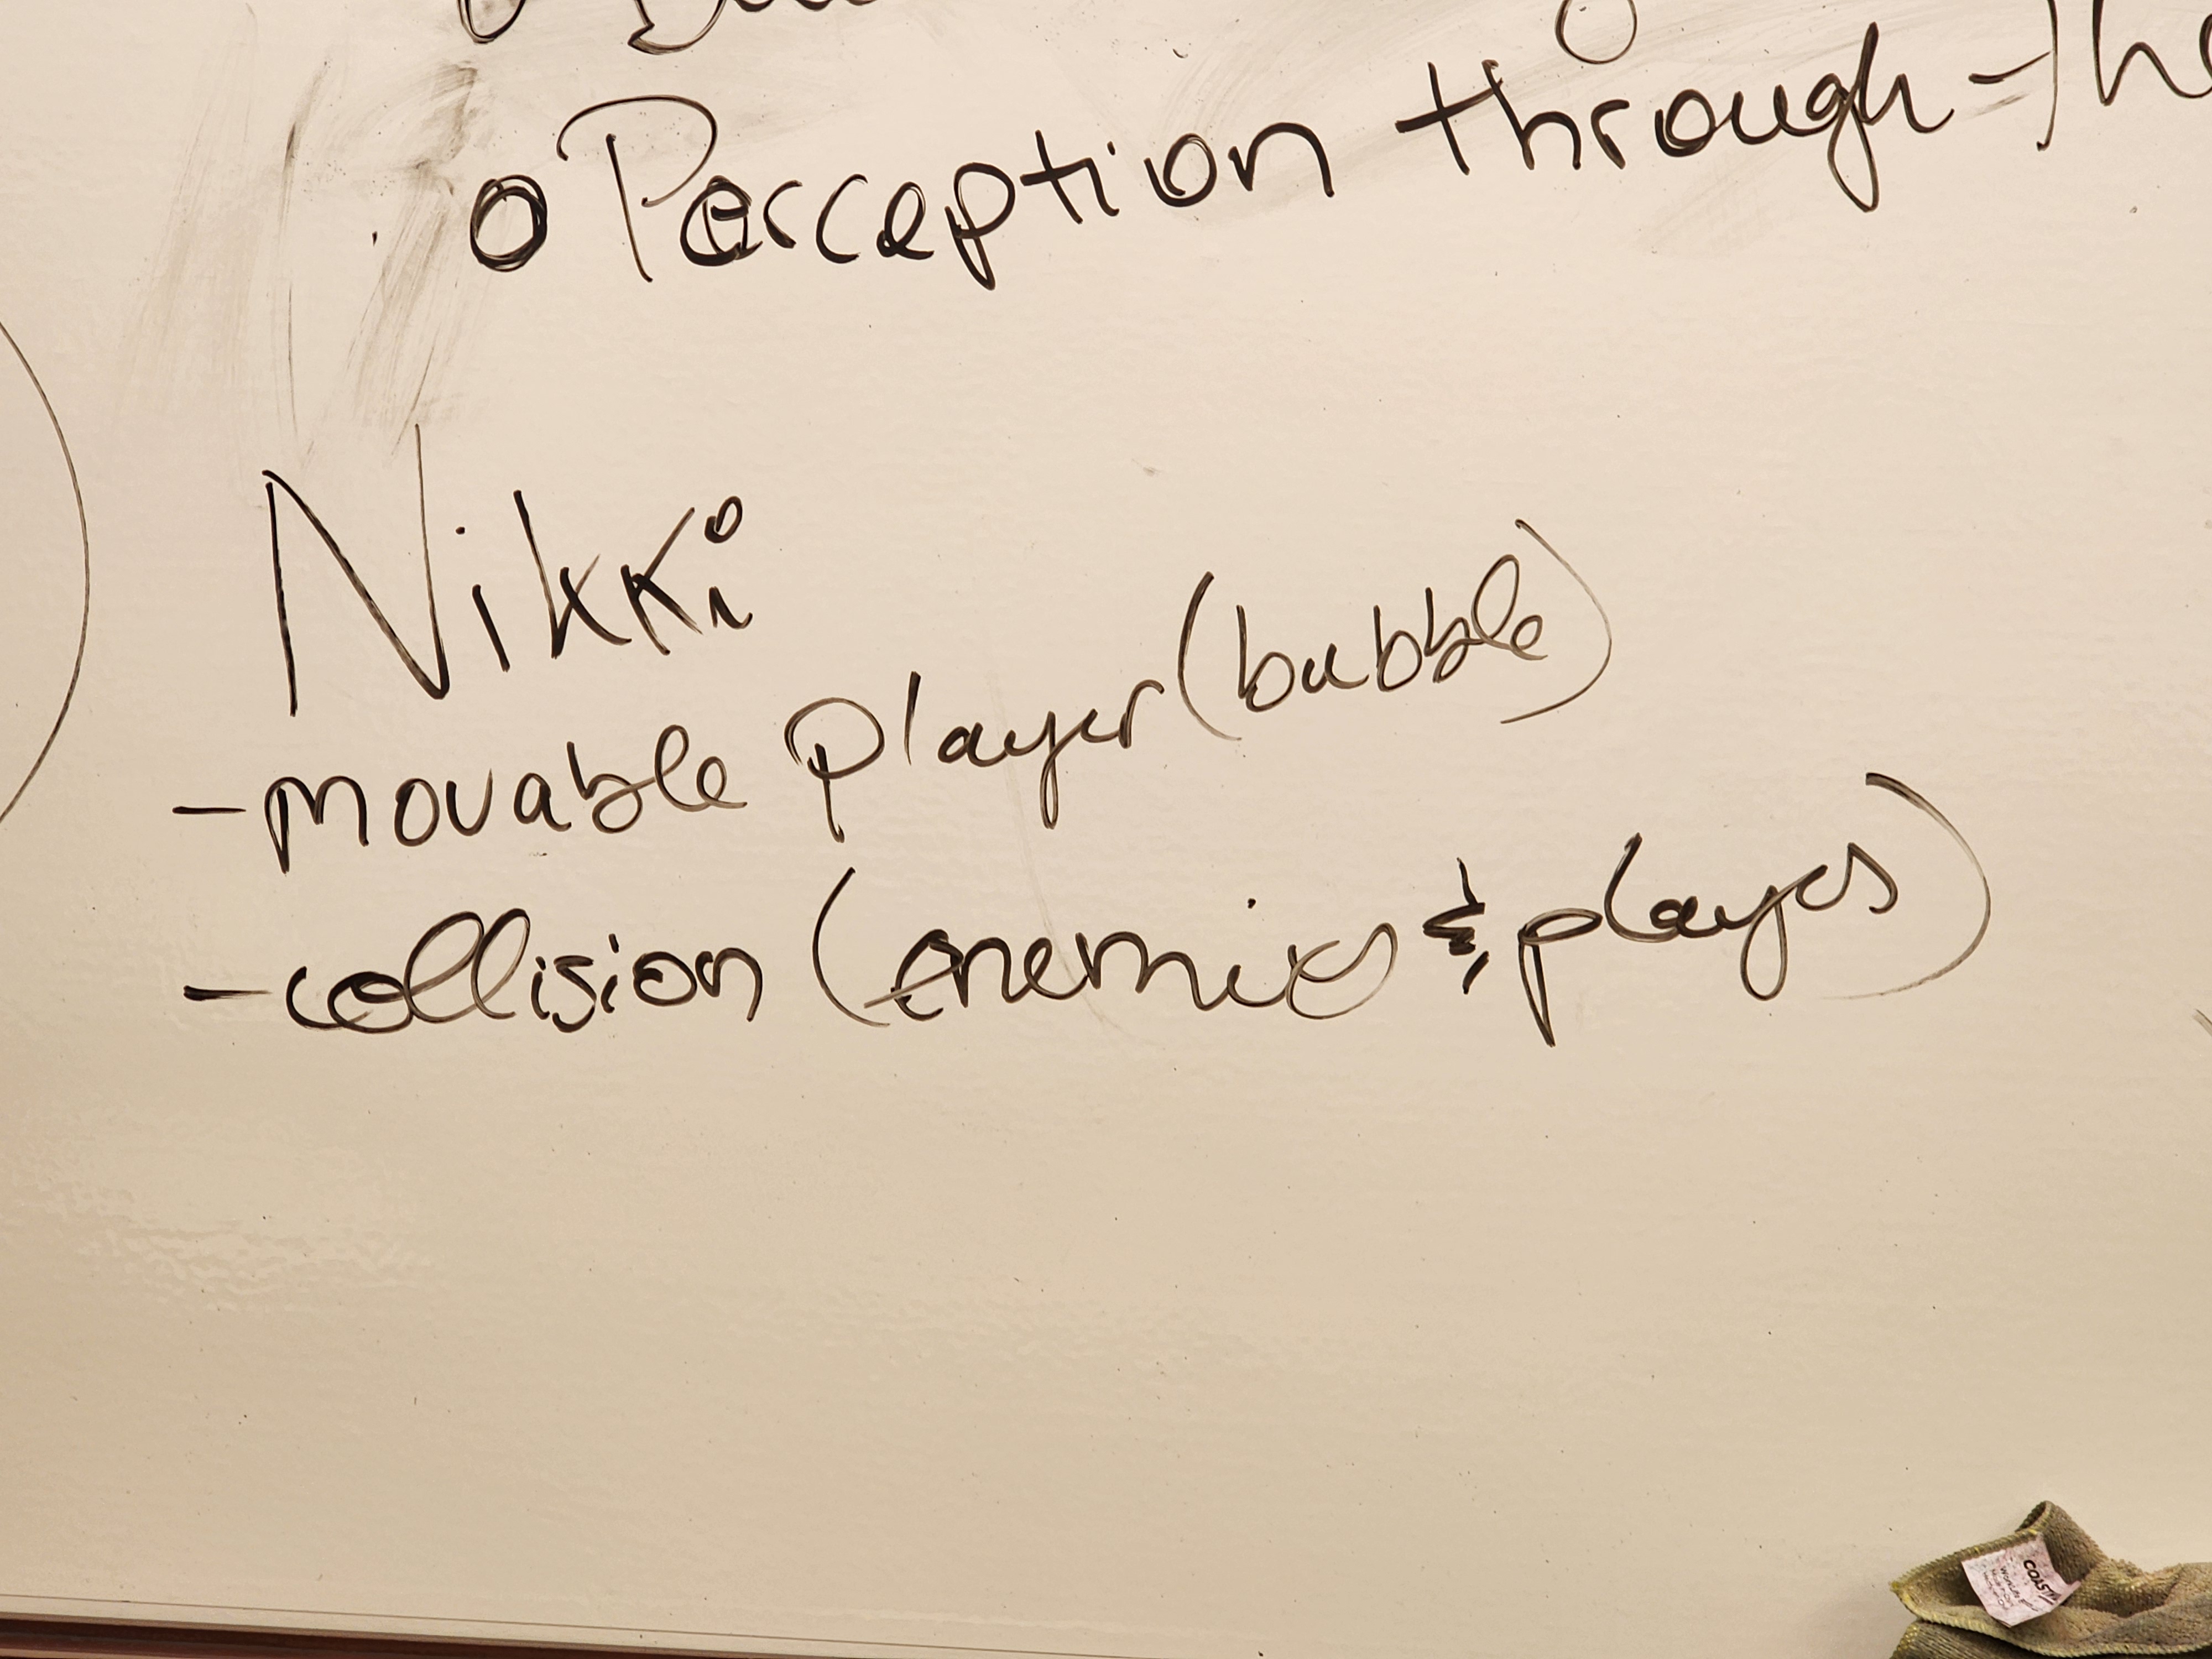 o Perception through-
Nikki
- movable player (bubble)
- collision (enemies & players)
COASTA